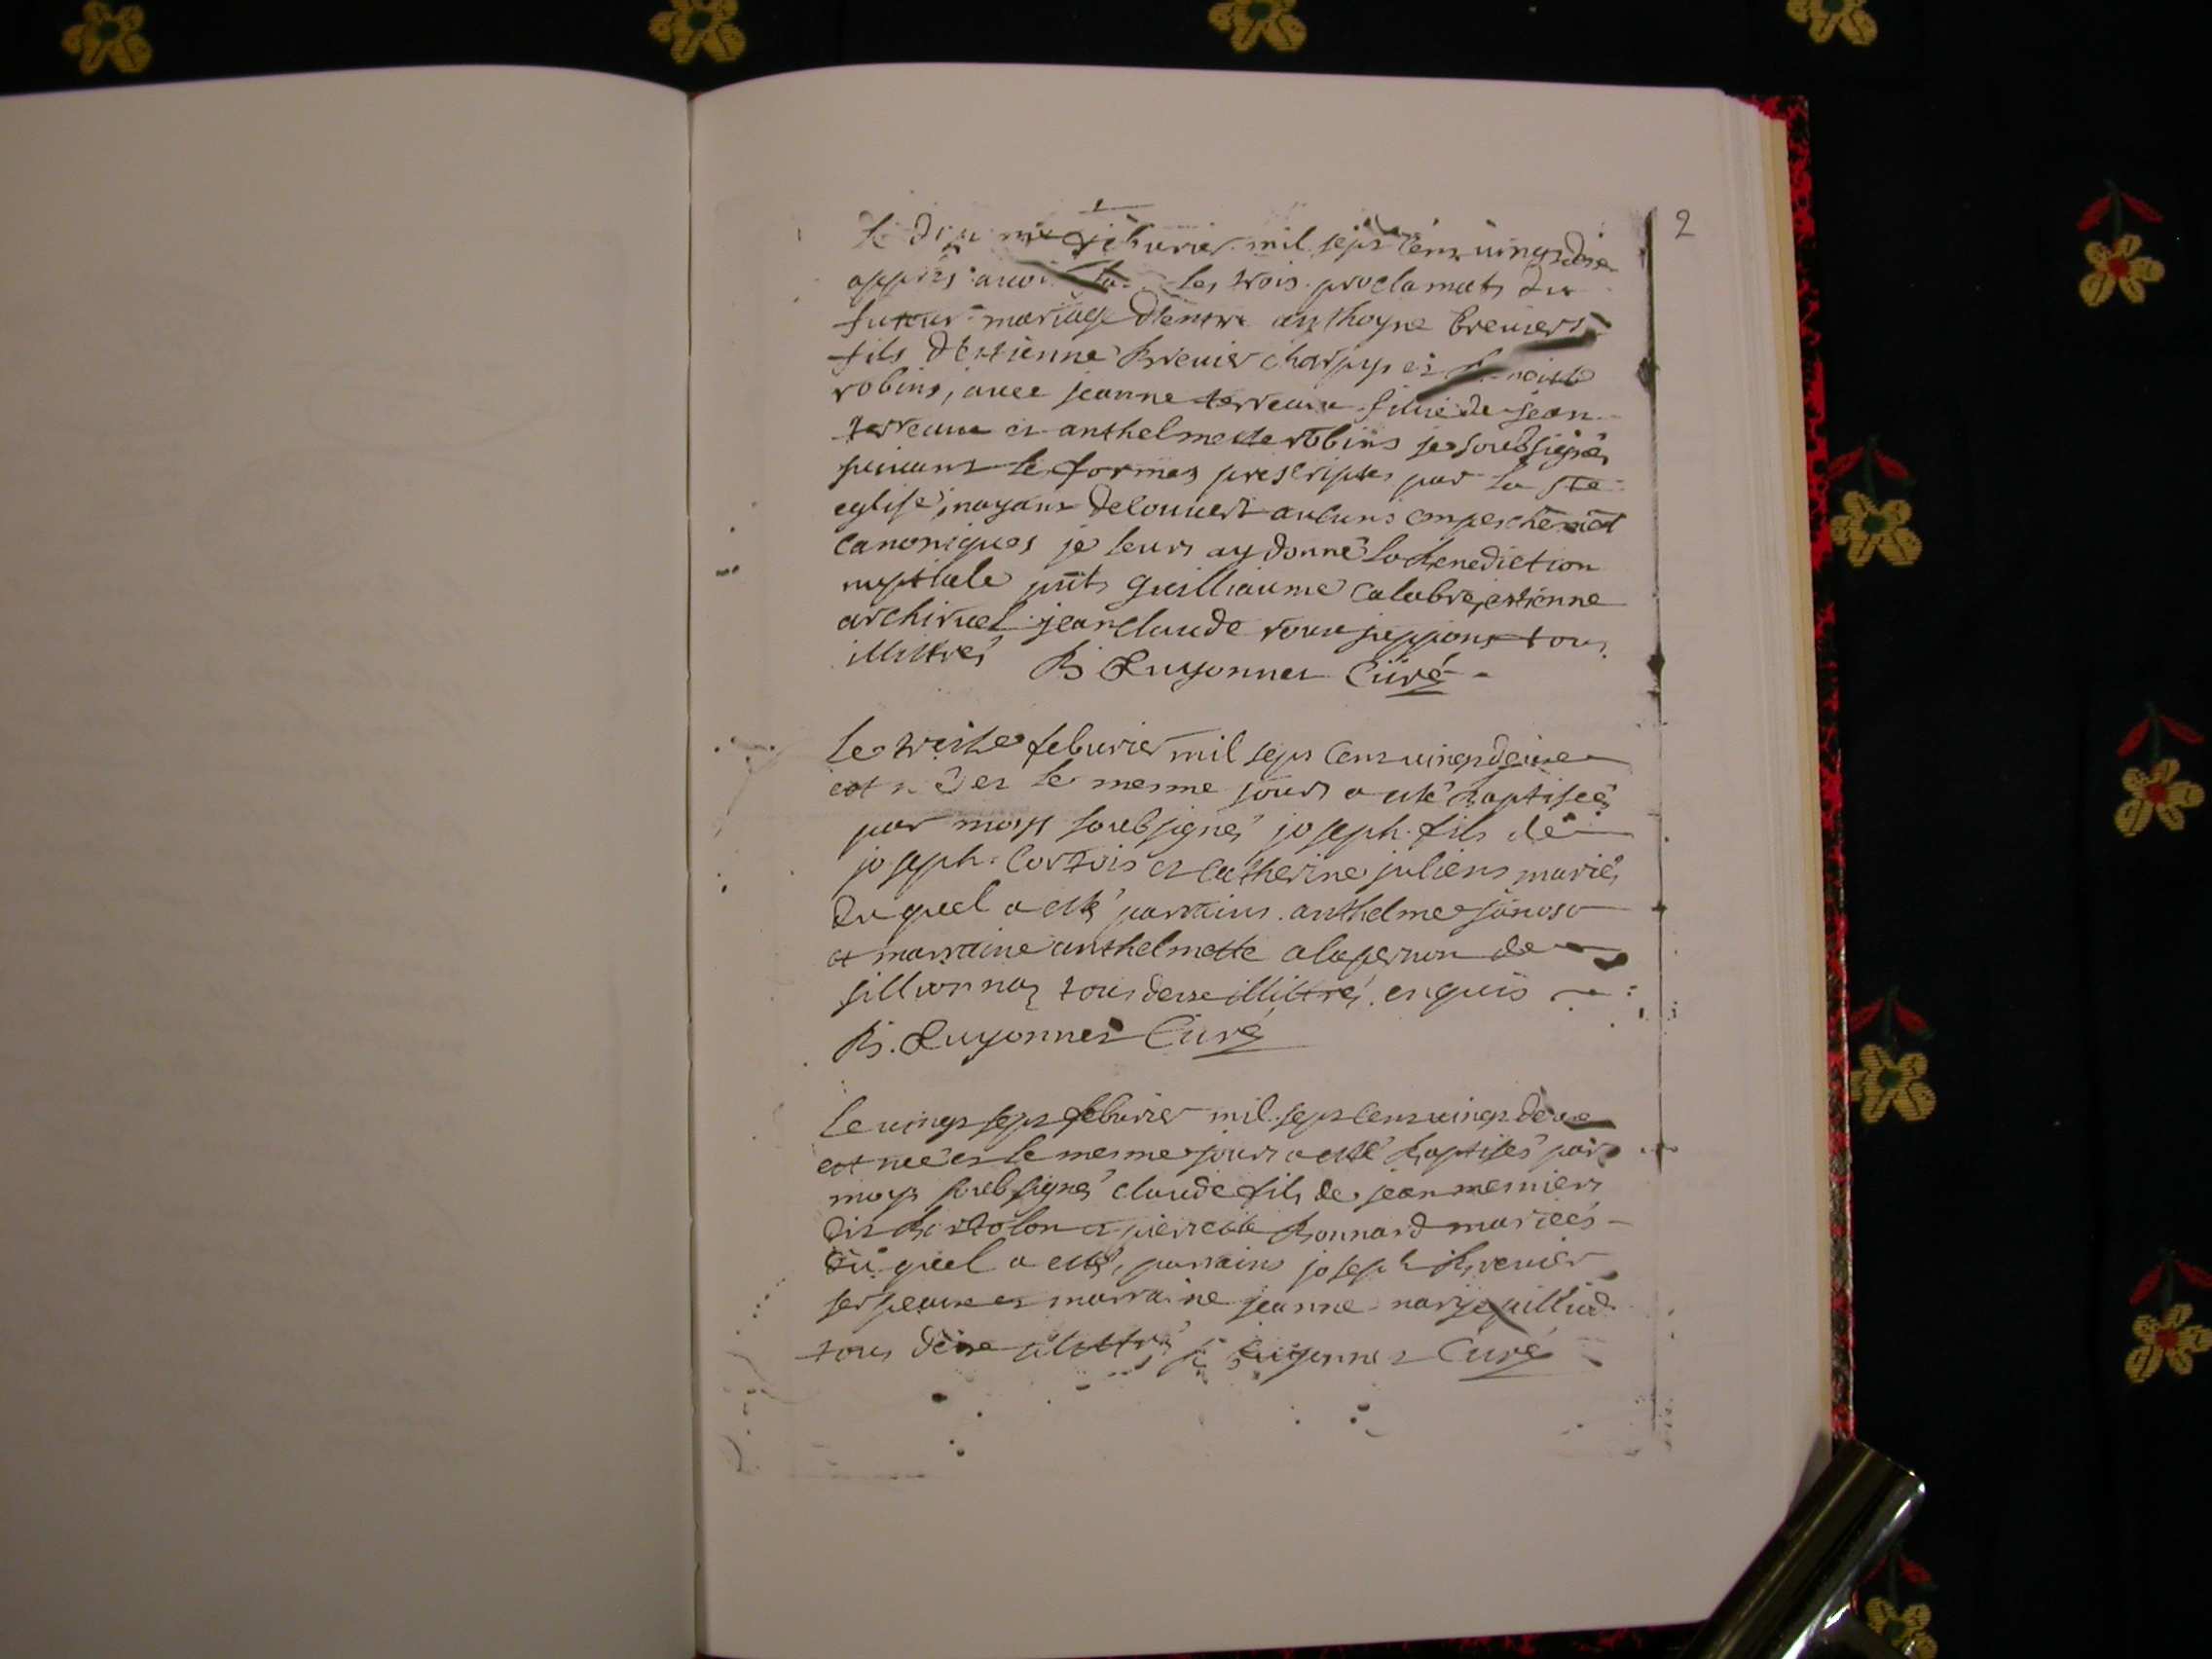 2
febvrier mil sept cent vingt deux
apprés avoir les trois proclamats du
futeur mariage d'entre anthoyne breviers
fils d'Estienne Brevier charpy et
robins, avec jeanne terreaux fille de jean
terreaux et anthelmette robins je soubsigné
suivant le formes prescriptes par la ste
eglise, nayant decouvert aucuns empeschemēt
canoniques je leurs ay donné la benediction
nuptiale pñts guilliaume calabre, estienne
jean claude roux tous
illittrés B Luyonnet Curé
le treise febvrier mil sept cent vingt deux
est né et le mesme jours a esté baptiséé
par moys soubsigné joseph fils de
joseph cortois et catherine juliens mariés
du quel a esté parrains anthelme
et marraine anthelmette de
tous deux illittrés enquis
B. Luyonnet Curé
le vingt sept febvrier mil sept cent vingt deux
est néé et le mesme jours a esté baptisés par
moys soubsigné claude fils de jean mermiers
dit et pierrette bonnard mariéés
du quel a esté parrains joseph Brevier
et marraine jeanne marye
tous deux illittrés B Luyonnet Curé